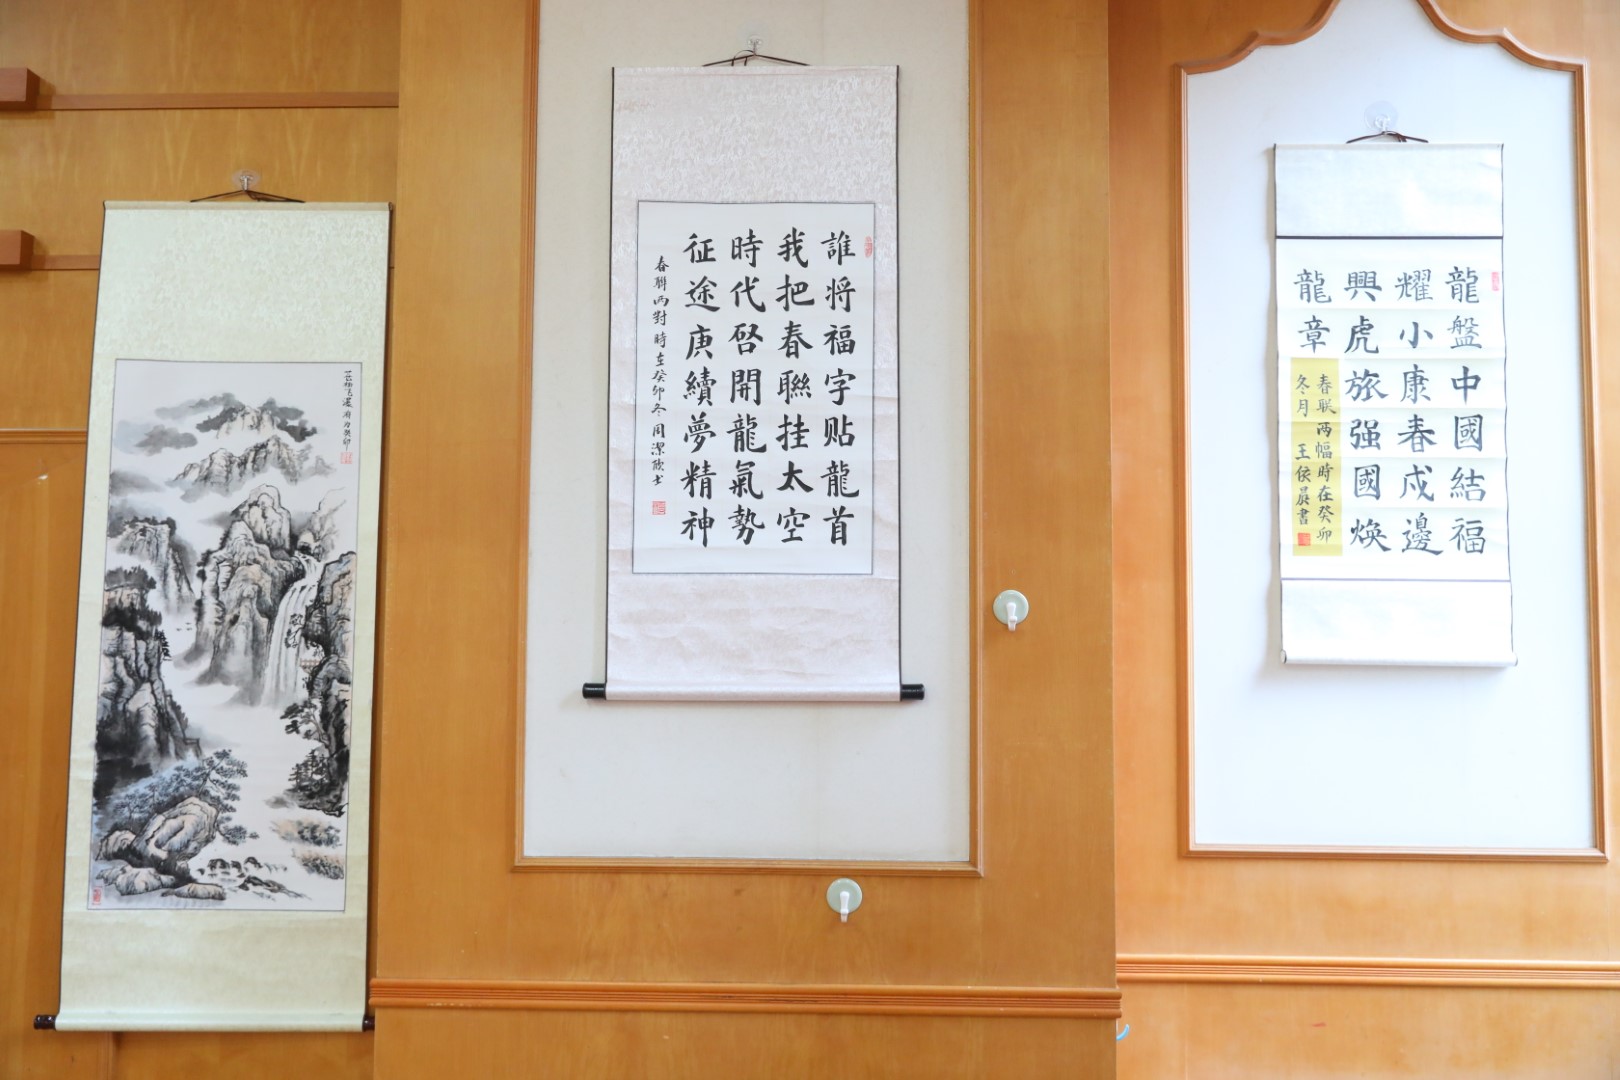 誰将福字贴龍首
我把春聯挂太空
時代啓開龍氣勢
征途庚續夢精神
春聯两對 時在癸卯冬周潔欣书
龍盤中國結福
耀小康春戍邊
興虎旅强國焕
龍章
春联两幅時在癸卯
冬月 王依晨書